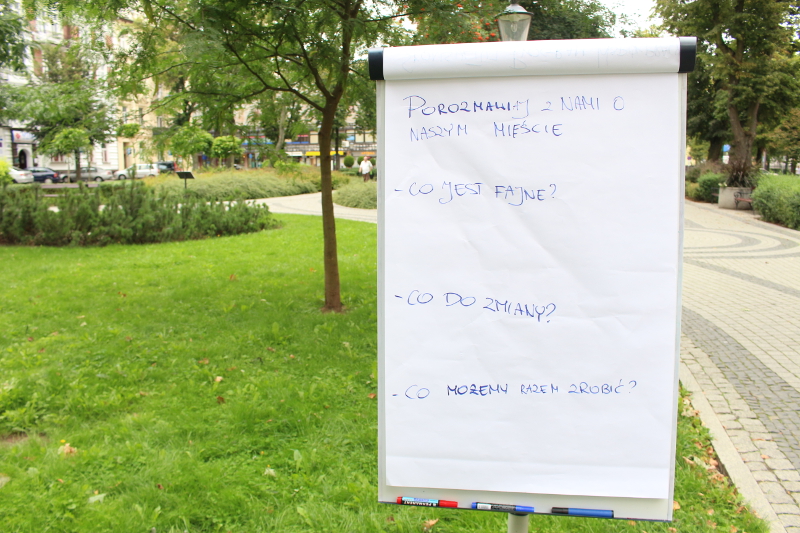 POROZMAWIAJ Z NAMI O
NASZYM MIEŚCIE
- CO JEST FAJNE?
- CO DO ZMIANY?
- CO MOŻEMY RAZEM ZROBIĆ?